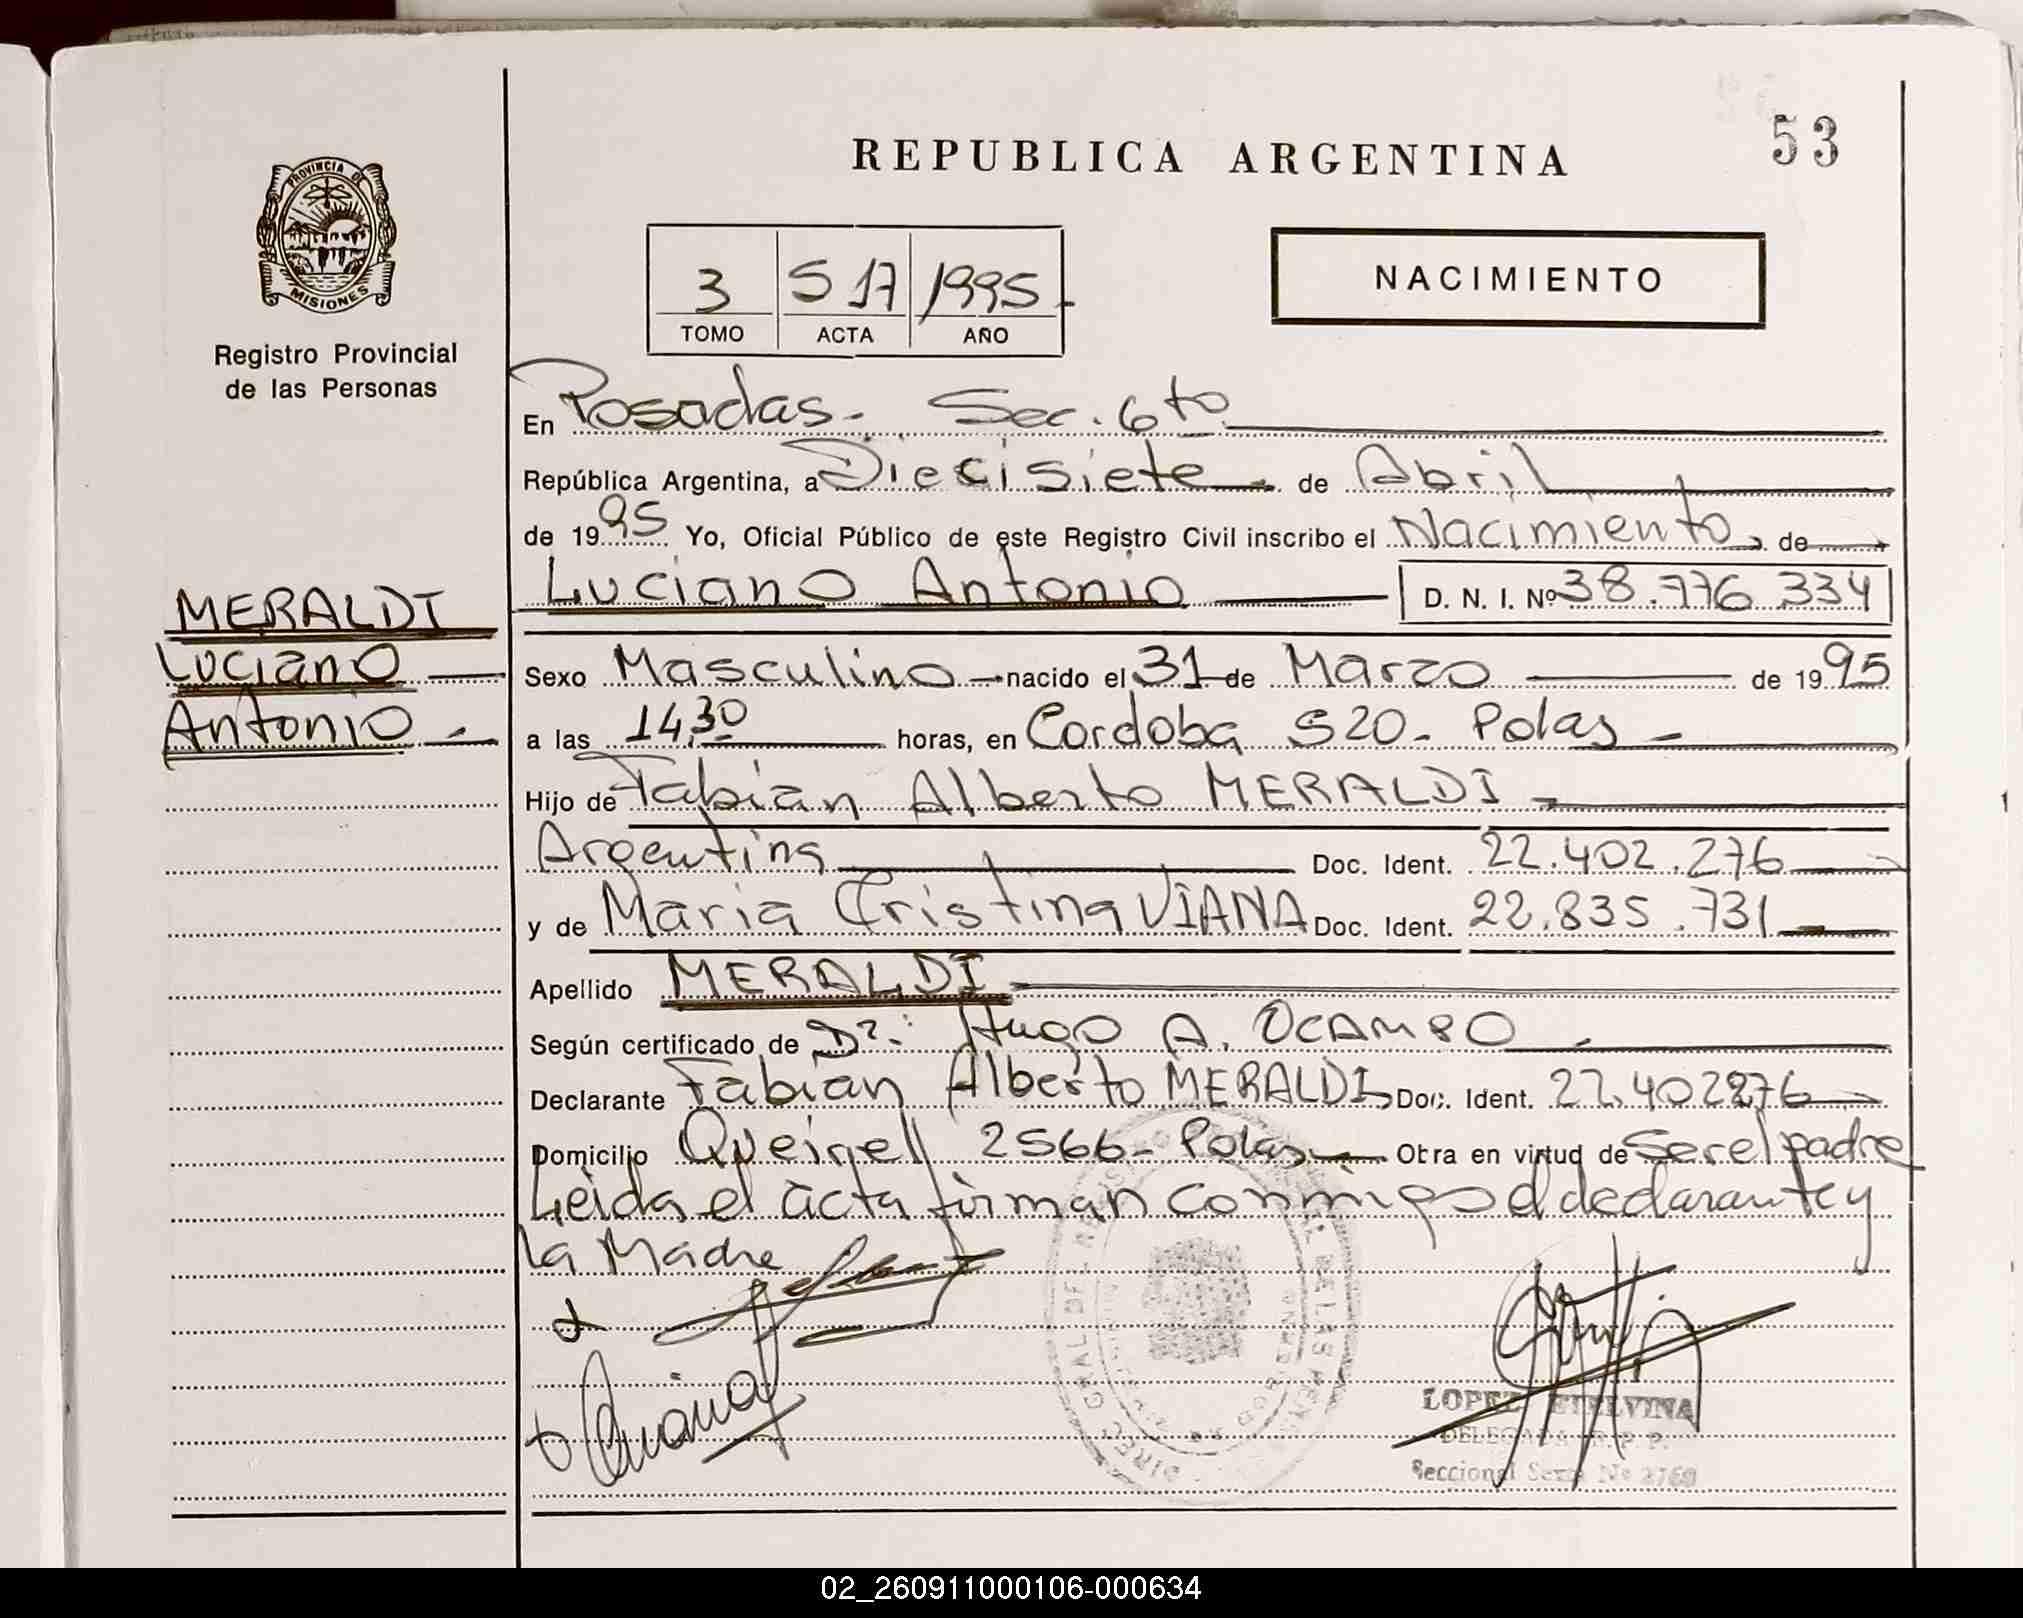 53
REPUBLICA ARGENTINA
PROVINCIA DE
MISIONES
Registro Provincial
de las Personas
3 517 1995
TOMO ACTA AÑO
NACIMIENTO
En Posadas - Sec. 6to
República Argentina, a Diecisiete de Abril
de 1995 Yo, Oficial Público de este Registro Civil inscribo el Nacimiento de
Luciano Antonio D. N. I. Nº 38.776.334
MERALDI
Luciano
Antonio
Sexo Masculino nacido el 31 de Marzo de 1995
a las 14,30 horas, en Cordoba 520 - Pdas
Hijo de Fabián Alberto MERALDI
Argentina Doc. Ident. 22.402.276
y de Maria Cristina VIANA Doc. Ident. 22.835.731
Apellido MERALDI
Según certificado de Dr: Hugo A. OCAMPO
Declarante Fabian Alberto MERALDI Doc. Ident. 22.402276
Domicilio 2566 - Pdas Otra en virtud de Ser el padre
Leida el acta firman conmigo el declarante y
la Madre
LOPEZ ETELVINA
DELEGADA R. P. P.
Seccional Sexta Nº 2769
02_260911000106-000634